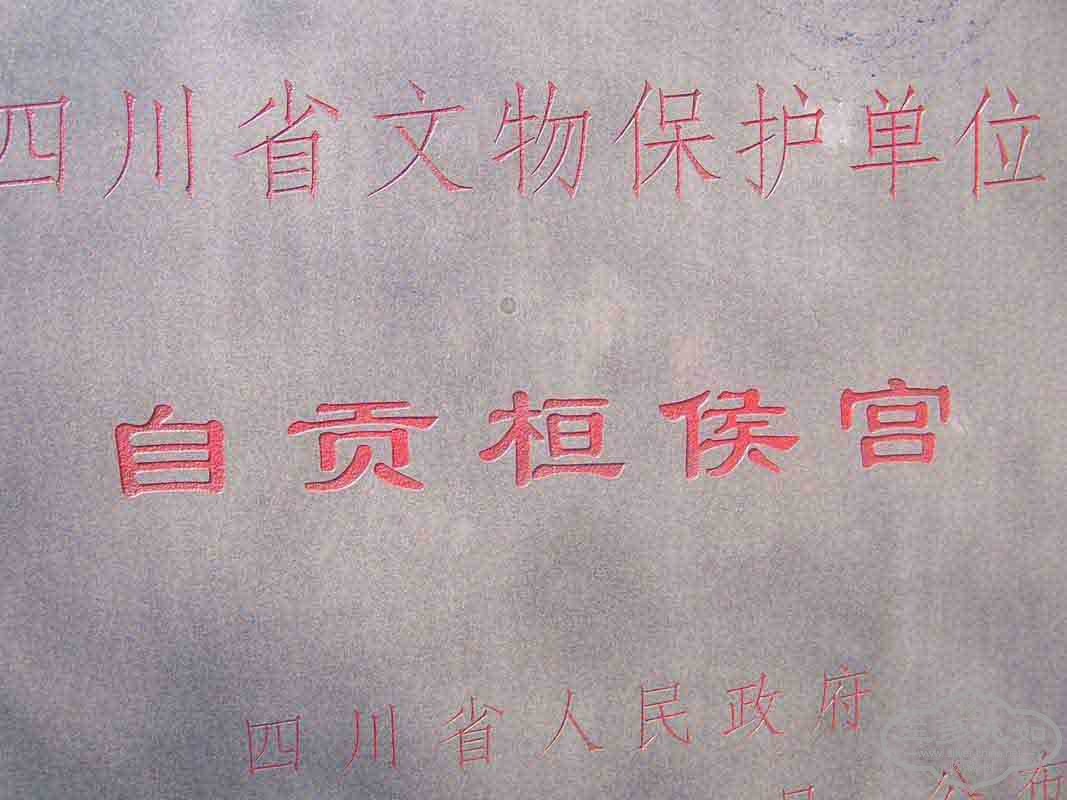 四川省文物保护单位
自贡桓侯宫
四川省人民政府
公布